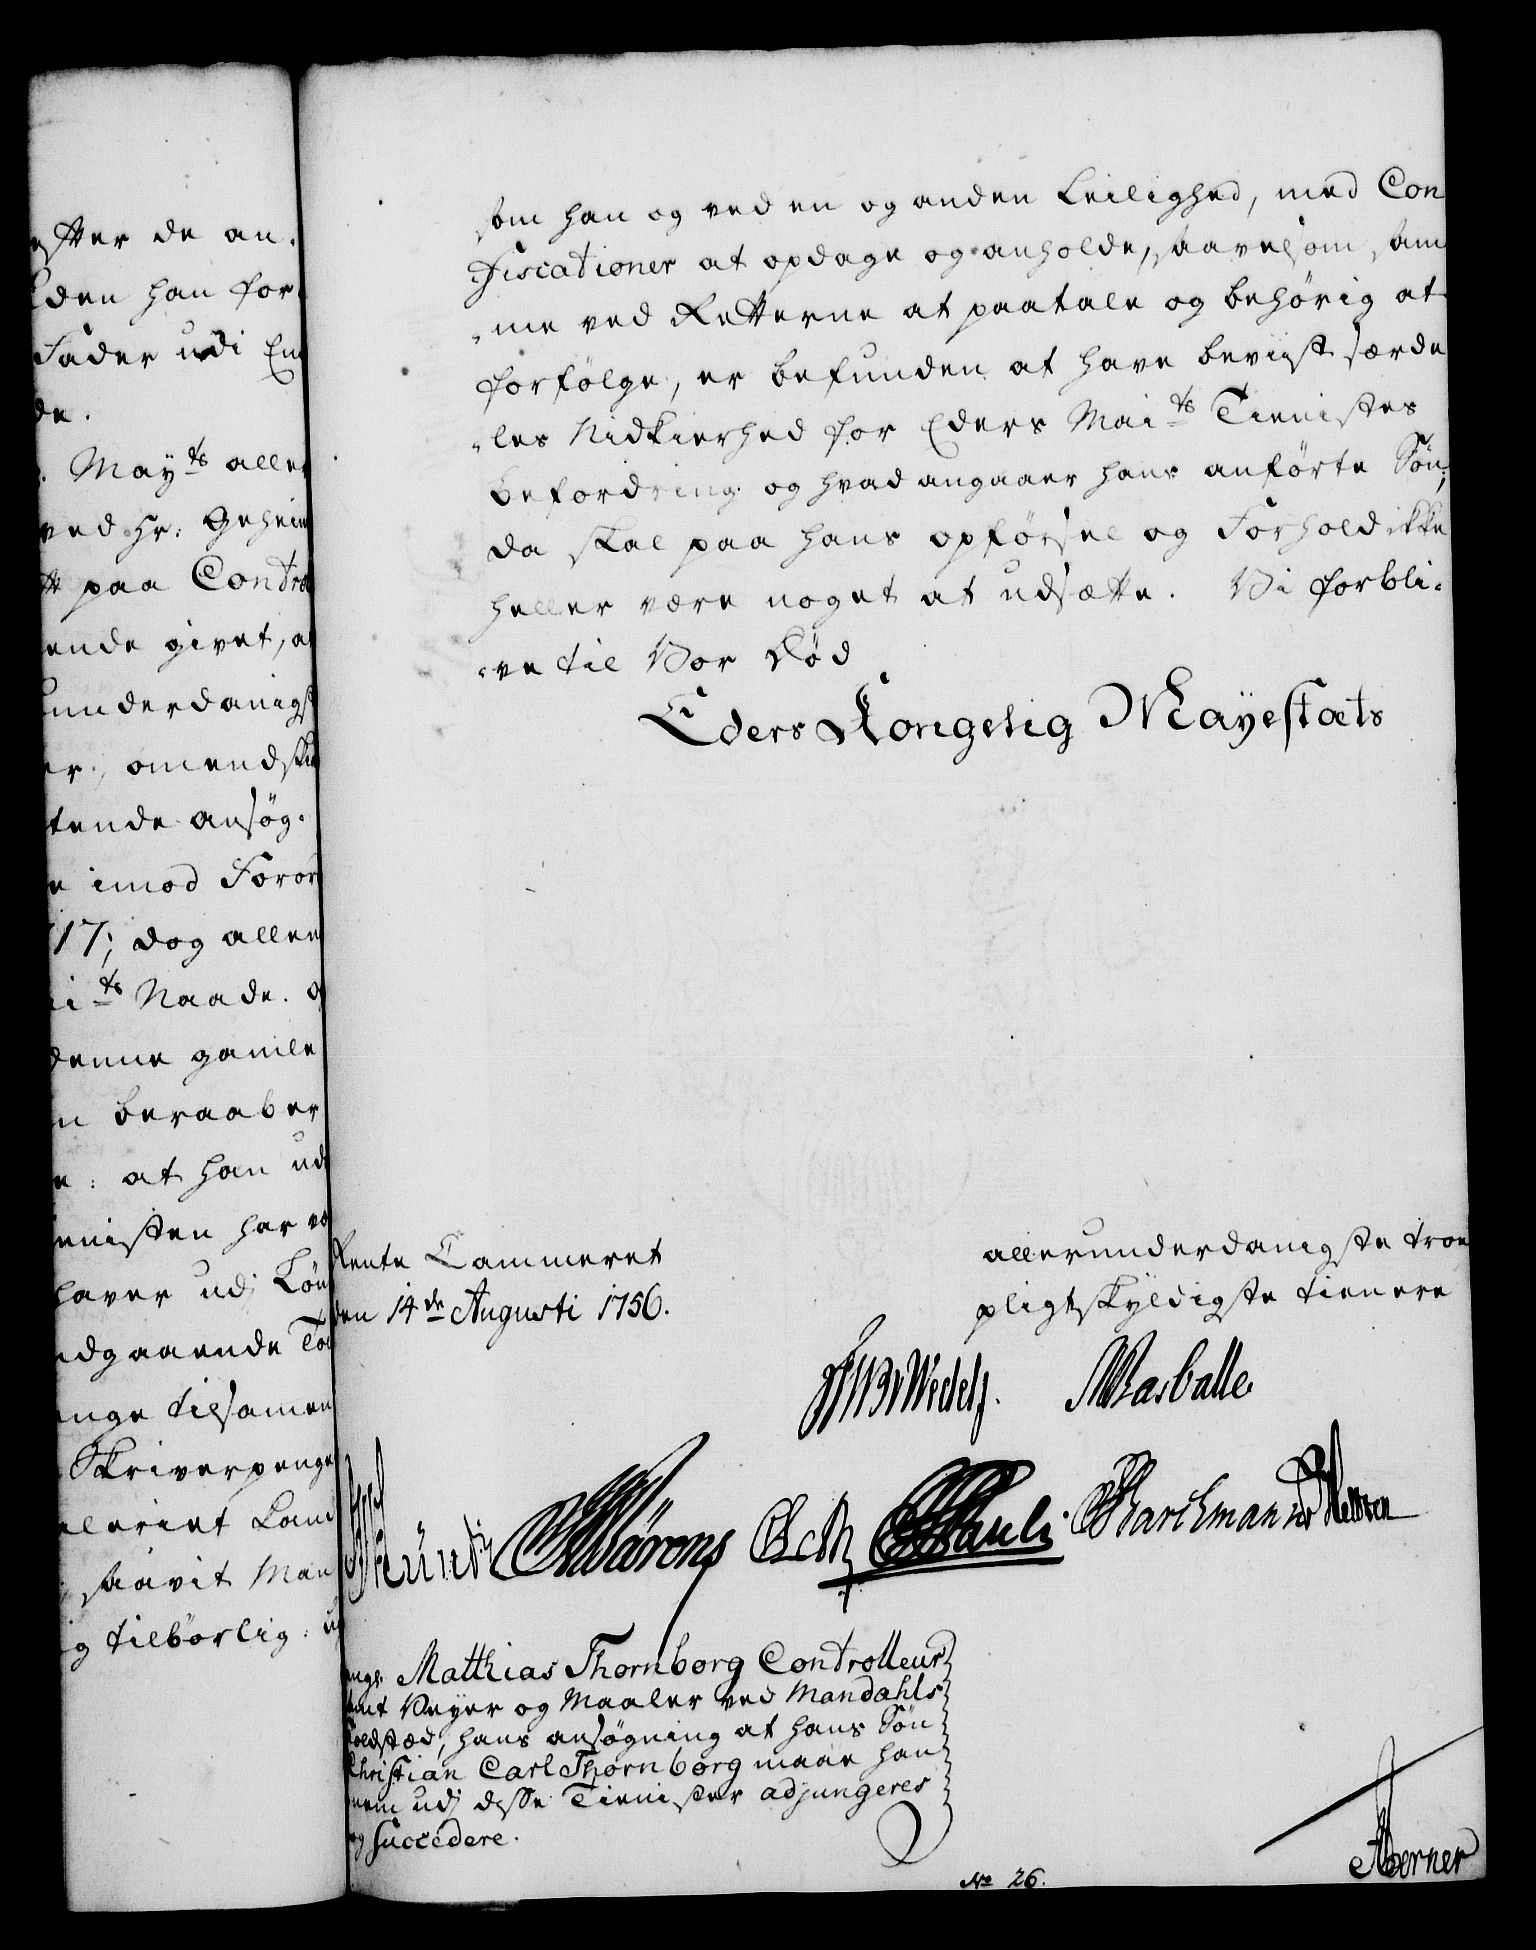 efter de an-
lden han for
Fader udi Em
de.
May^ts aller
ved Hr: Geheim
paa Control
ende givet, at
underdanigst
er, omendskiø
tende ansøg-
e imod Foror
717; dog aller
i^ts Naade. og
denne gamle
n beraaber
e: at han udi
enisten har
haver udj Løn
dgaaende Tol
enge tilsamen
Skriverpenge
Land
saavit Man
ig tilbørlig:
som han og ved en og anden Leilighed, med Con
fiscationer at opdage og anholde, saavelsom sam
-me ved Retterne at paatale og behörig at
forfölge, er befunden at have beviist særde
-les Nidkierhed for Eders Mai^ts Tienistes
befordring. og hvad angaaer hans anförte Sön,
da skal paa hans opförsel og Forhold ikke
heller være noget at udsætte. Vi forbli-
-ve til Vor Död
Eders Kongelig Mayestæts
Rente Cammeret
den 14^de Augusti 1756.
allerunderdanigste troe
pligtskyldigste tienere
Wedel.
Barchman
Matthias Thornborg Controlleur
samt Veyer og Maaler ved Mandahls
Toldstæd, hans ansøgning at hans Sön
Christian Carl Thornborg maae han
nem udj disse Tienister adjungeres
og succedere.
No 26.